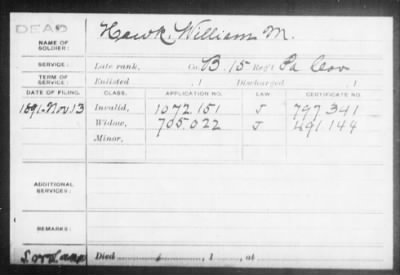 DEAD
NAME OF SOLDIER: Hawk, William M.
SERVICE: Late rank, Co. B. 15 Reg't Pa Cav
TERM OF SERVICE: Enlisted , 1 Discharged , 1
DATE OF FILING. CLASS. APPLICATION NO. LAW CERTIFICATE NO.
1891-Nov.13 Invalid, 1072.151 J 797.341
Widow, 705.022 J 491.144
Minor,
ADDITIONAL SERVICES:
REMARKS:
Died , 1 , at